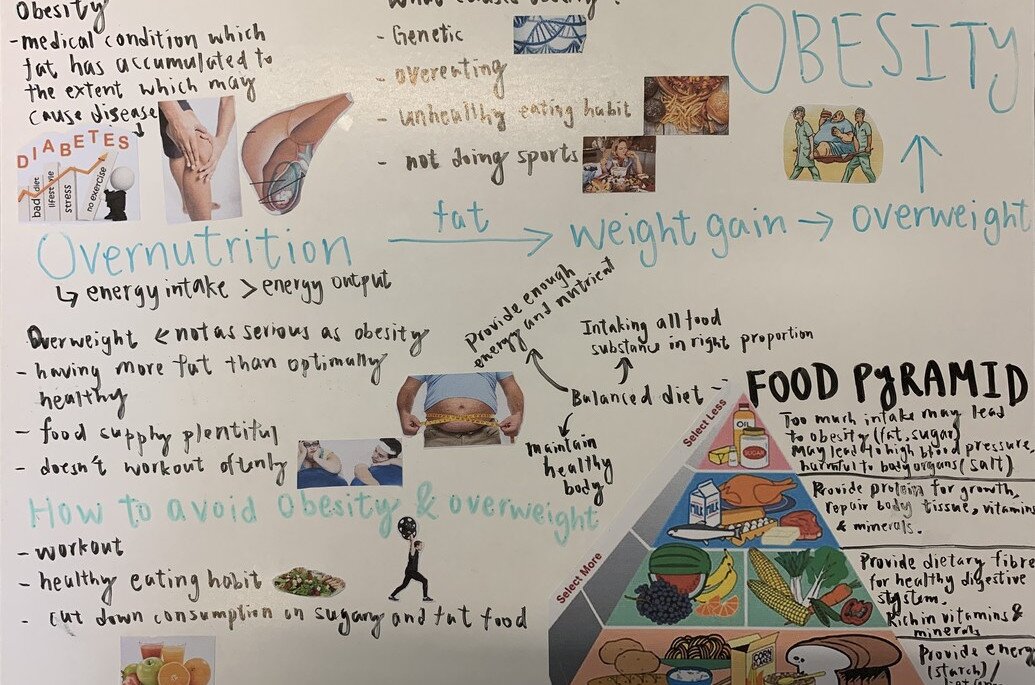 Obesity
-medical condition which
fat has accumulated to
the extent which may
cause disease
DIABETES
bad diet
lifestyle
stress
no exercise
What causes obesity?
- Genetic
- overeating
- unhealthy eating habit
- not doing sports
OBESITY
Overnutrition
fat
weight gain → overweight
↳ energy intake > energy output
Overweight < not as serious as obesity
- having more fat than optimally
healthy
- food supply plentiful
- doesn't workout oftenly
Provide enough
energy and nutrient
Intaking all food
substance in right proportion
Balanced diet
maintain
healthy
body
How to avoid obesity & overweight
- workout
- healthy eating habit
- cut down consumption on sugary and fat food
FOOD PYRAMID
Select Less
OIL
SUGAR
Too much intake may lead
to obesity (fat, sugar)
May lead to high blood pressure,
harmful to body organs (salt)
MILK
MILK
Provide protein for growth,
repair body tissue, vitamins
& minerals.
Select More
Provide dietary fibre
for healthy digestive
system.
Rich in vitamins &
minerals
CORN
Provide energy
(starch) /